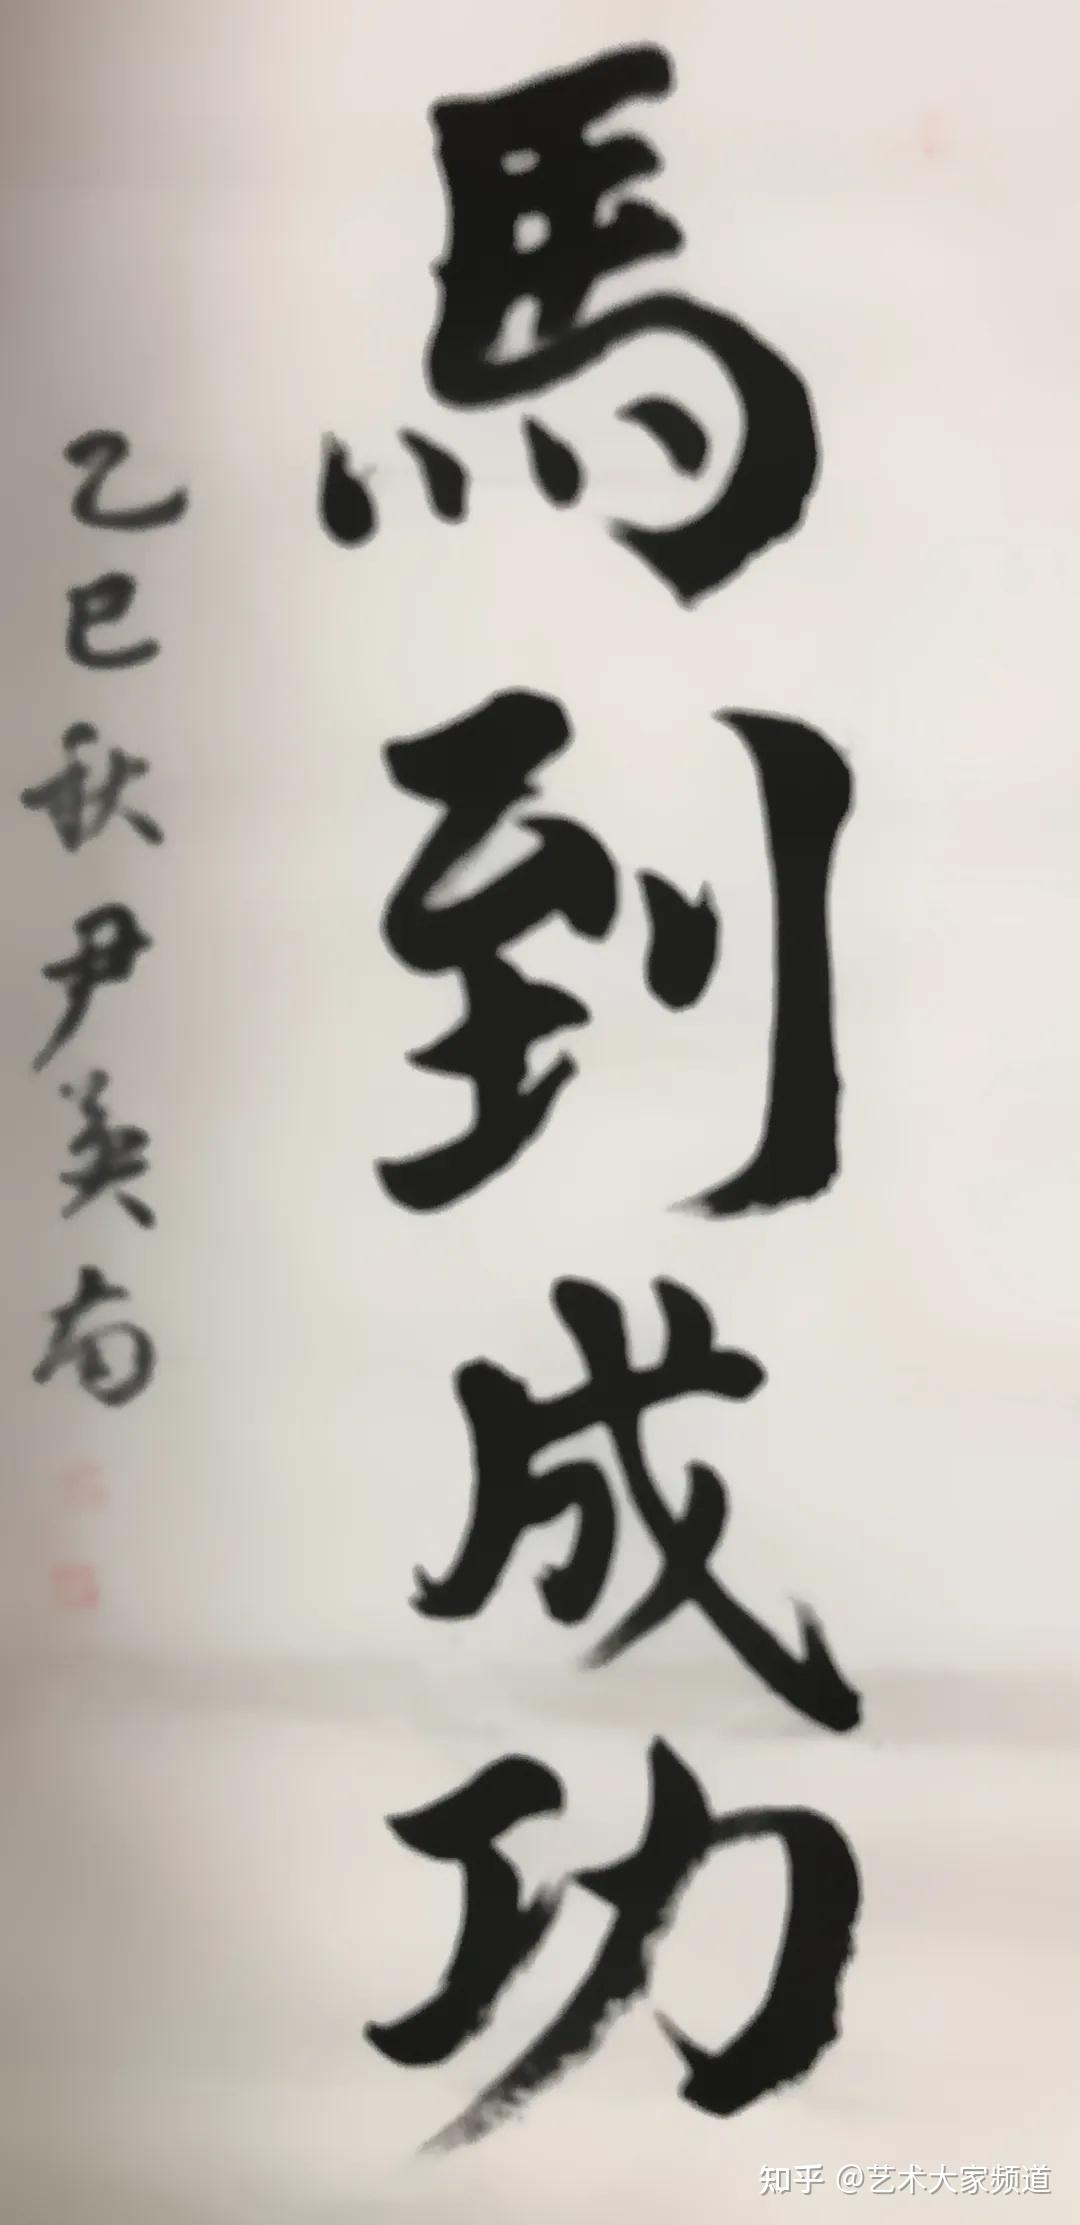 馬到成功
乙巳秋尹美南
知乎 @艺术大家频道